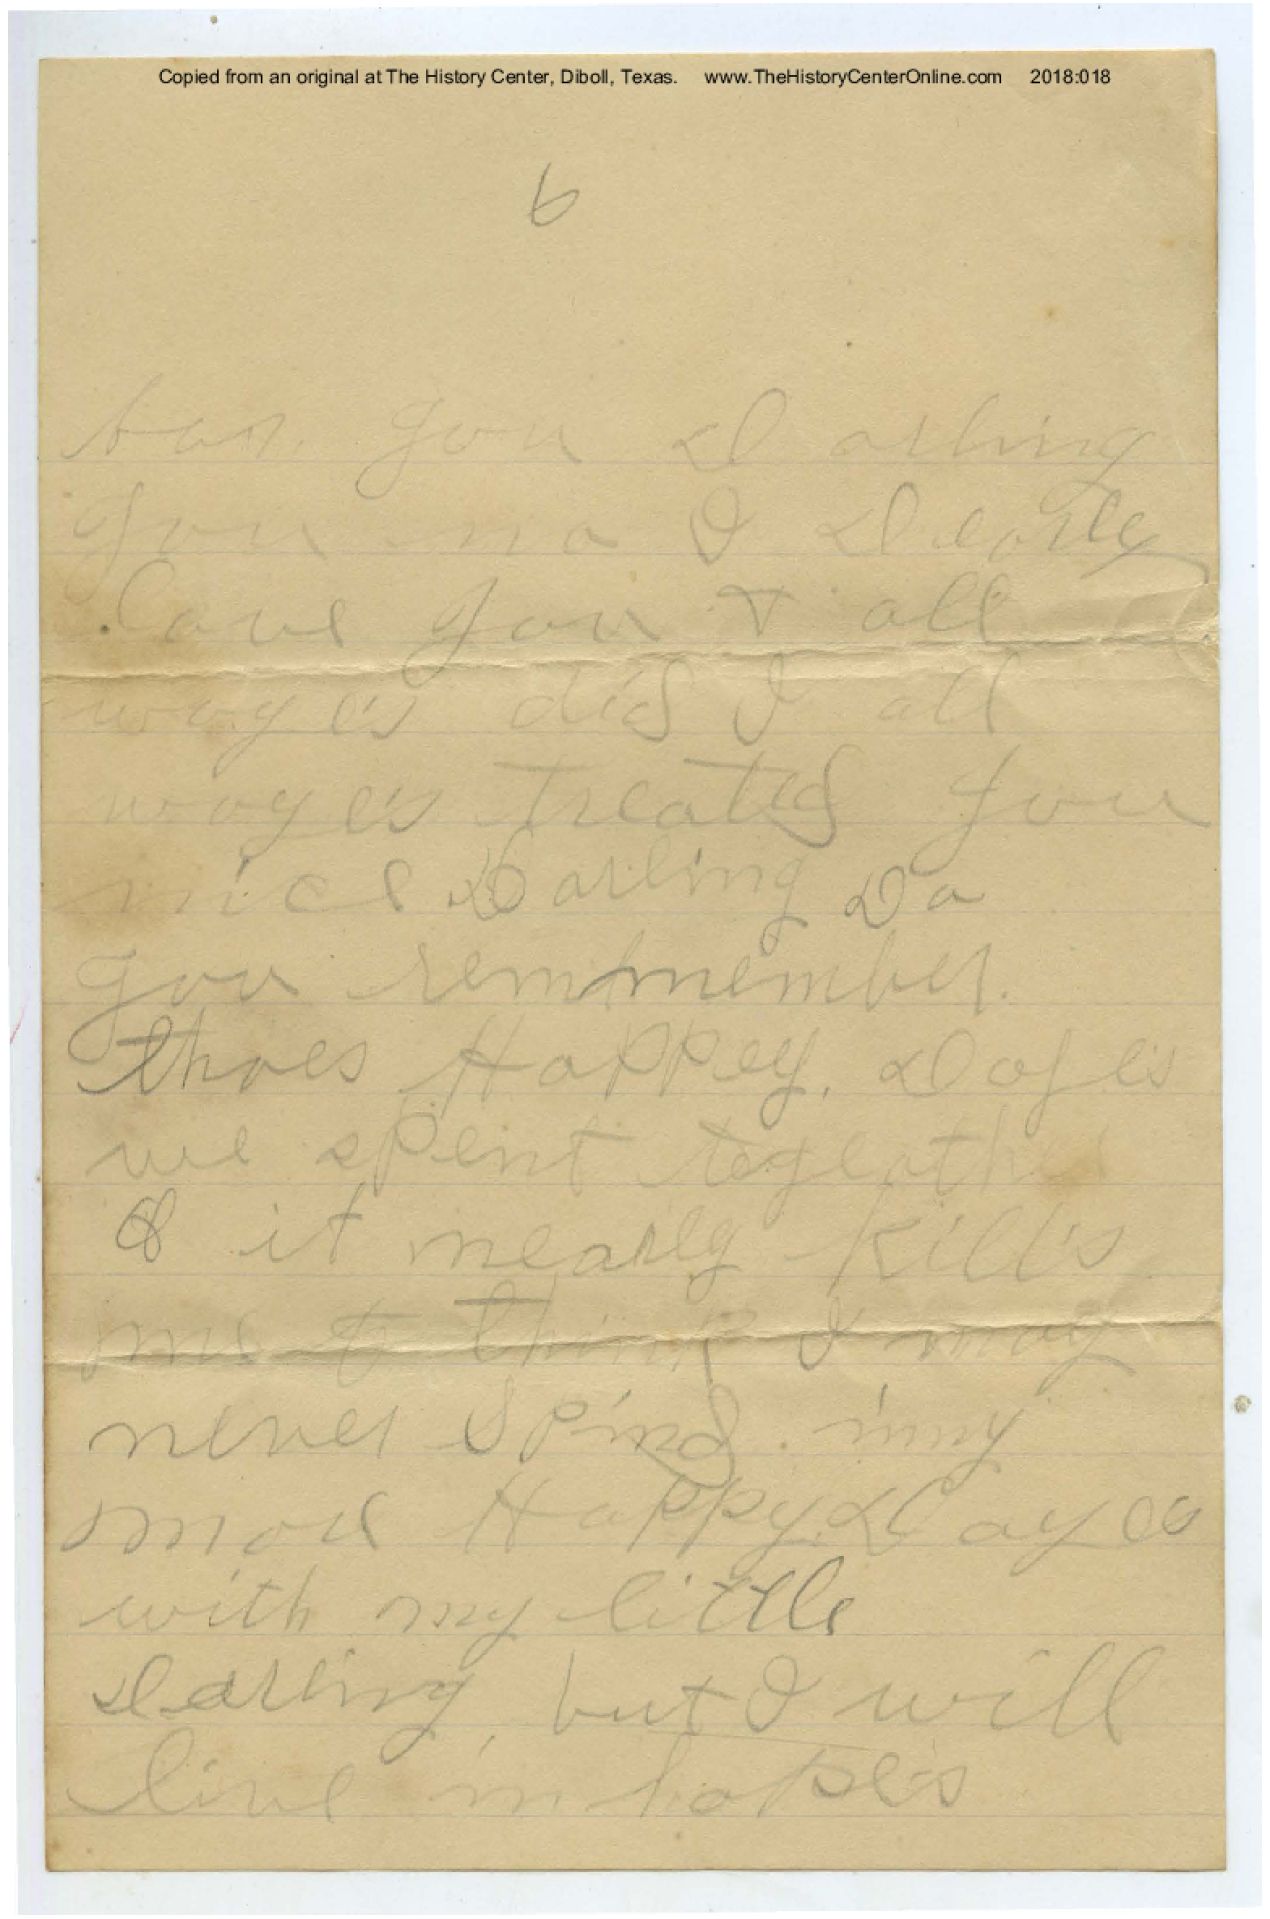 Copied from an original at The History Center, Diboll, Texas. www.TheHistoryCenterOnline.com 2018:018
6
you Darling
you no I Dearly
love you & all
wayes did I all
wayes treated you
nice Darling Do
you remmember.
thoes Happey. Dayes
we spent togeather
& it nearly kills
me to think I may
never spind inny
more Happy Dayes
with my little
Darling but I will
live in hopes